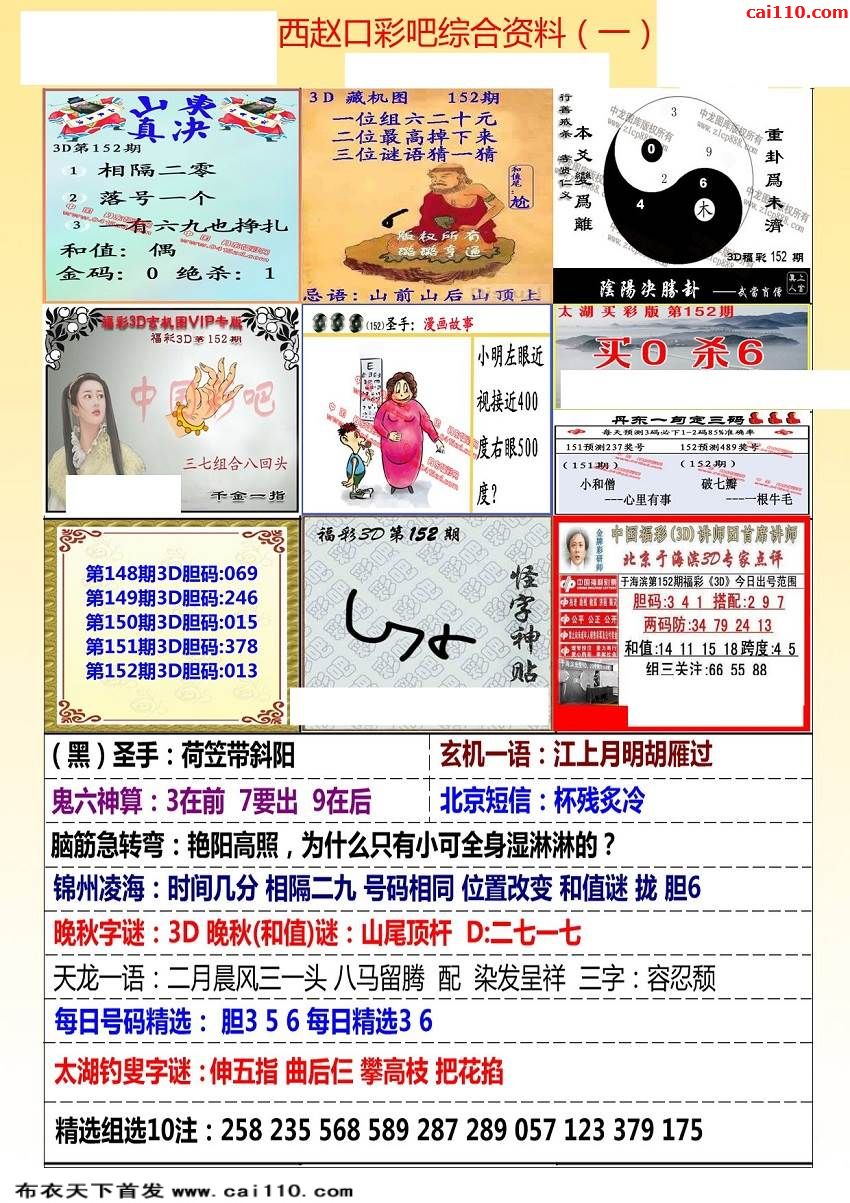 cai110.com
西赵口彩吧综合资料（一）
山東
真决
3D第152期
1 相隔二零
2 落号一个
3 有六九也挣扎
和值：偶
金码：0 绝杀：1
3D 藏机图 152期
一位组六二十元
二位最高掉下来
三位谜语猜一猜
和值尾：尬
版权所有
忌语：山前山后山顶上
行善戒杀 孝贤仁义
本爻變爲離
重卦爲未濟
中龙图库版权所有
www.zlcp888.com
3
9
0
2
6
4
木
3D福彩 152 期
陰陽决勝卦——武當肖僧
福彩3D玄机图VIP专版
福彩3D第152期
三七组合八回头
千金一指
(152)圣手：漫画故事
小明左眼近
视接近400
度右眼500
度？
太湖买彩版 第152期
买0 杀6
丹东一句定三码
每天预测3码必下1-2码85%准确率
151预测237奖号 152预测489奖号
（151期） （152期）
小和僧 破七瓣
---心里有事 ---一根牛毛
第148期3D胆码:069
第149期3D胆码:246
第150期3D胆码:015
第151期3D胆码:378
第152期3D胆码:013
福彩3D第152期
怪字神贴
金牌彩研师
中国福彩(3D)讲师团首席讲师
北京于海滨3D专家点评
中国福利彩票
于海滨第152期福彩《3D》今日出号范围
胆码:3 4 1 搭配:2 9 7
公平 公正 公开
两码防:34 79 24 13
和值:14 11 15 18 跨度:4 5
组三关注:66 55 88
（黑）圣手：荷笠带斜阳
玄机一语：江上月明胡雁过
鬼六神算：3在前 7要出 9在后
北京短信：杯残炙冷
脑筋急转弯：艳阳高照，为什么只有小可全身湿淋淋的？
锦州凌海：时间几分 相隔二九 号码相同 位置改变 和值谜 拢 胆6
晚秋字谜：3D 晚秋(和值)谜：山尾顶杆 D:二七一七
天龙一语：二月晨风三一头 八马留腾 配 染发呈祥 三字：容忍颓
每日号码精选： 胆3 5 6 每日精选3 6
太湖钓叟字谜：伸五指 曲后仨 攀高枝 把花掐
精选组选10注：258 235 568 589 287 289 057 123 379 175
布衣天下首发 www.cai110.com